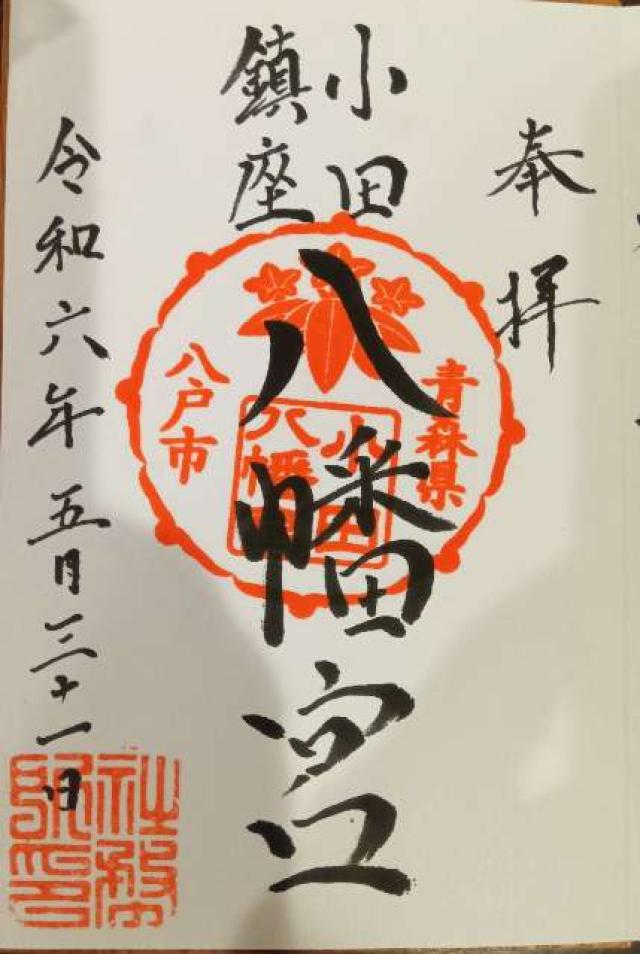 奉拝
小田
鎮座
八幡宮
青森県
八戸市
小田
八幡宮
令和六年五月三十一日
社務所印